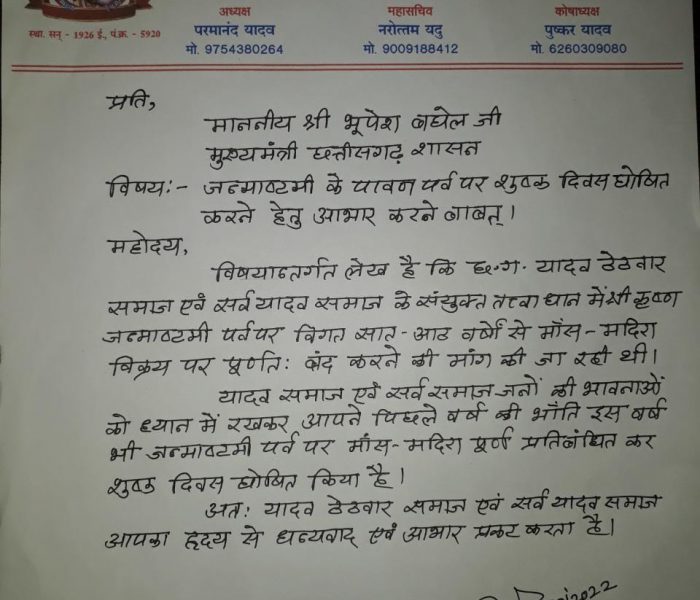 अध्यक्ष
परमानंद यादव
मो. 9754380264
महासचिव
नरोत्तम यदु
मो. 9009188412
कोषाध्यक्ष
पुष्कर यादव
मो. 6260309080
स्था. सन् - 1926 ई., पं.क्र. - 5920
प्रति,
माननीय श्री भूपेश बघेल जी
मुख्यमंत्री छत्तीसगढ़ शासन
विषय:- जन्माष्टमी के पावन पर्व पर शुष्क दिवस घोषित
करने हेतु आभार करने बाबत्।
महोदय,
विषयान्तर्गत लेख है कि छ.ग. यादव ठेठवार
समाज एवं सर्व यादव समाज के संयुक्त तत्वाधान में श्री कृष्ण
जन्माष्टमी पर्व पर विगत सात-आठ वर्षों से माँस-मदिरा
विक्रय पर पूर्णत: बंद करने की मांग की जा रही थी।
यादव समाज एवं सर्व समाज जनों की भावनाओं
को ध्यान में रखकर आपने पिछले वर्ष की भाँति इस वर्ष
भी जन्माष्टमी पर्व पर माँस-मदिरा पूर्ण प्रतिबंधित कर
शुष्क दिवस घोषित किया है।
अत: यादव ठेठवार समाज एवं सर्व यादव समाज
आपका हृदय से धन्यवाद एवं आभार प्रकट करता है।
2022